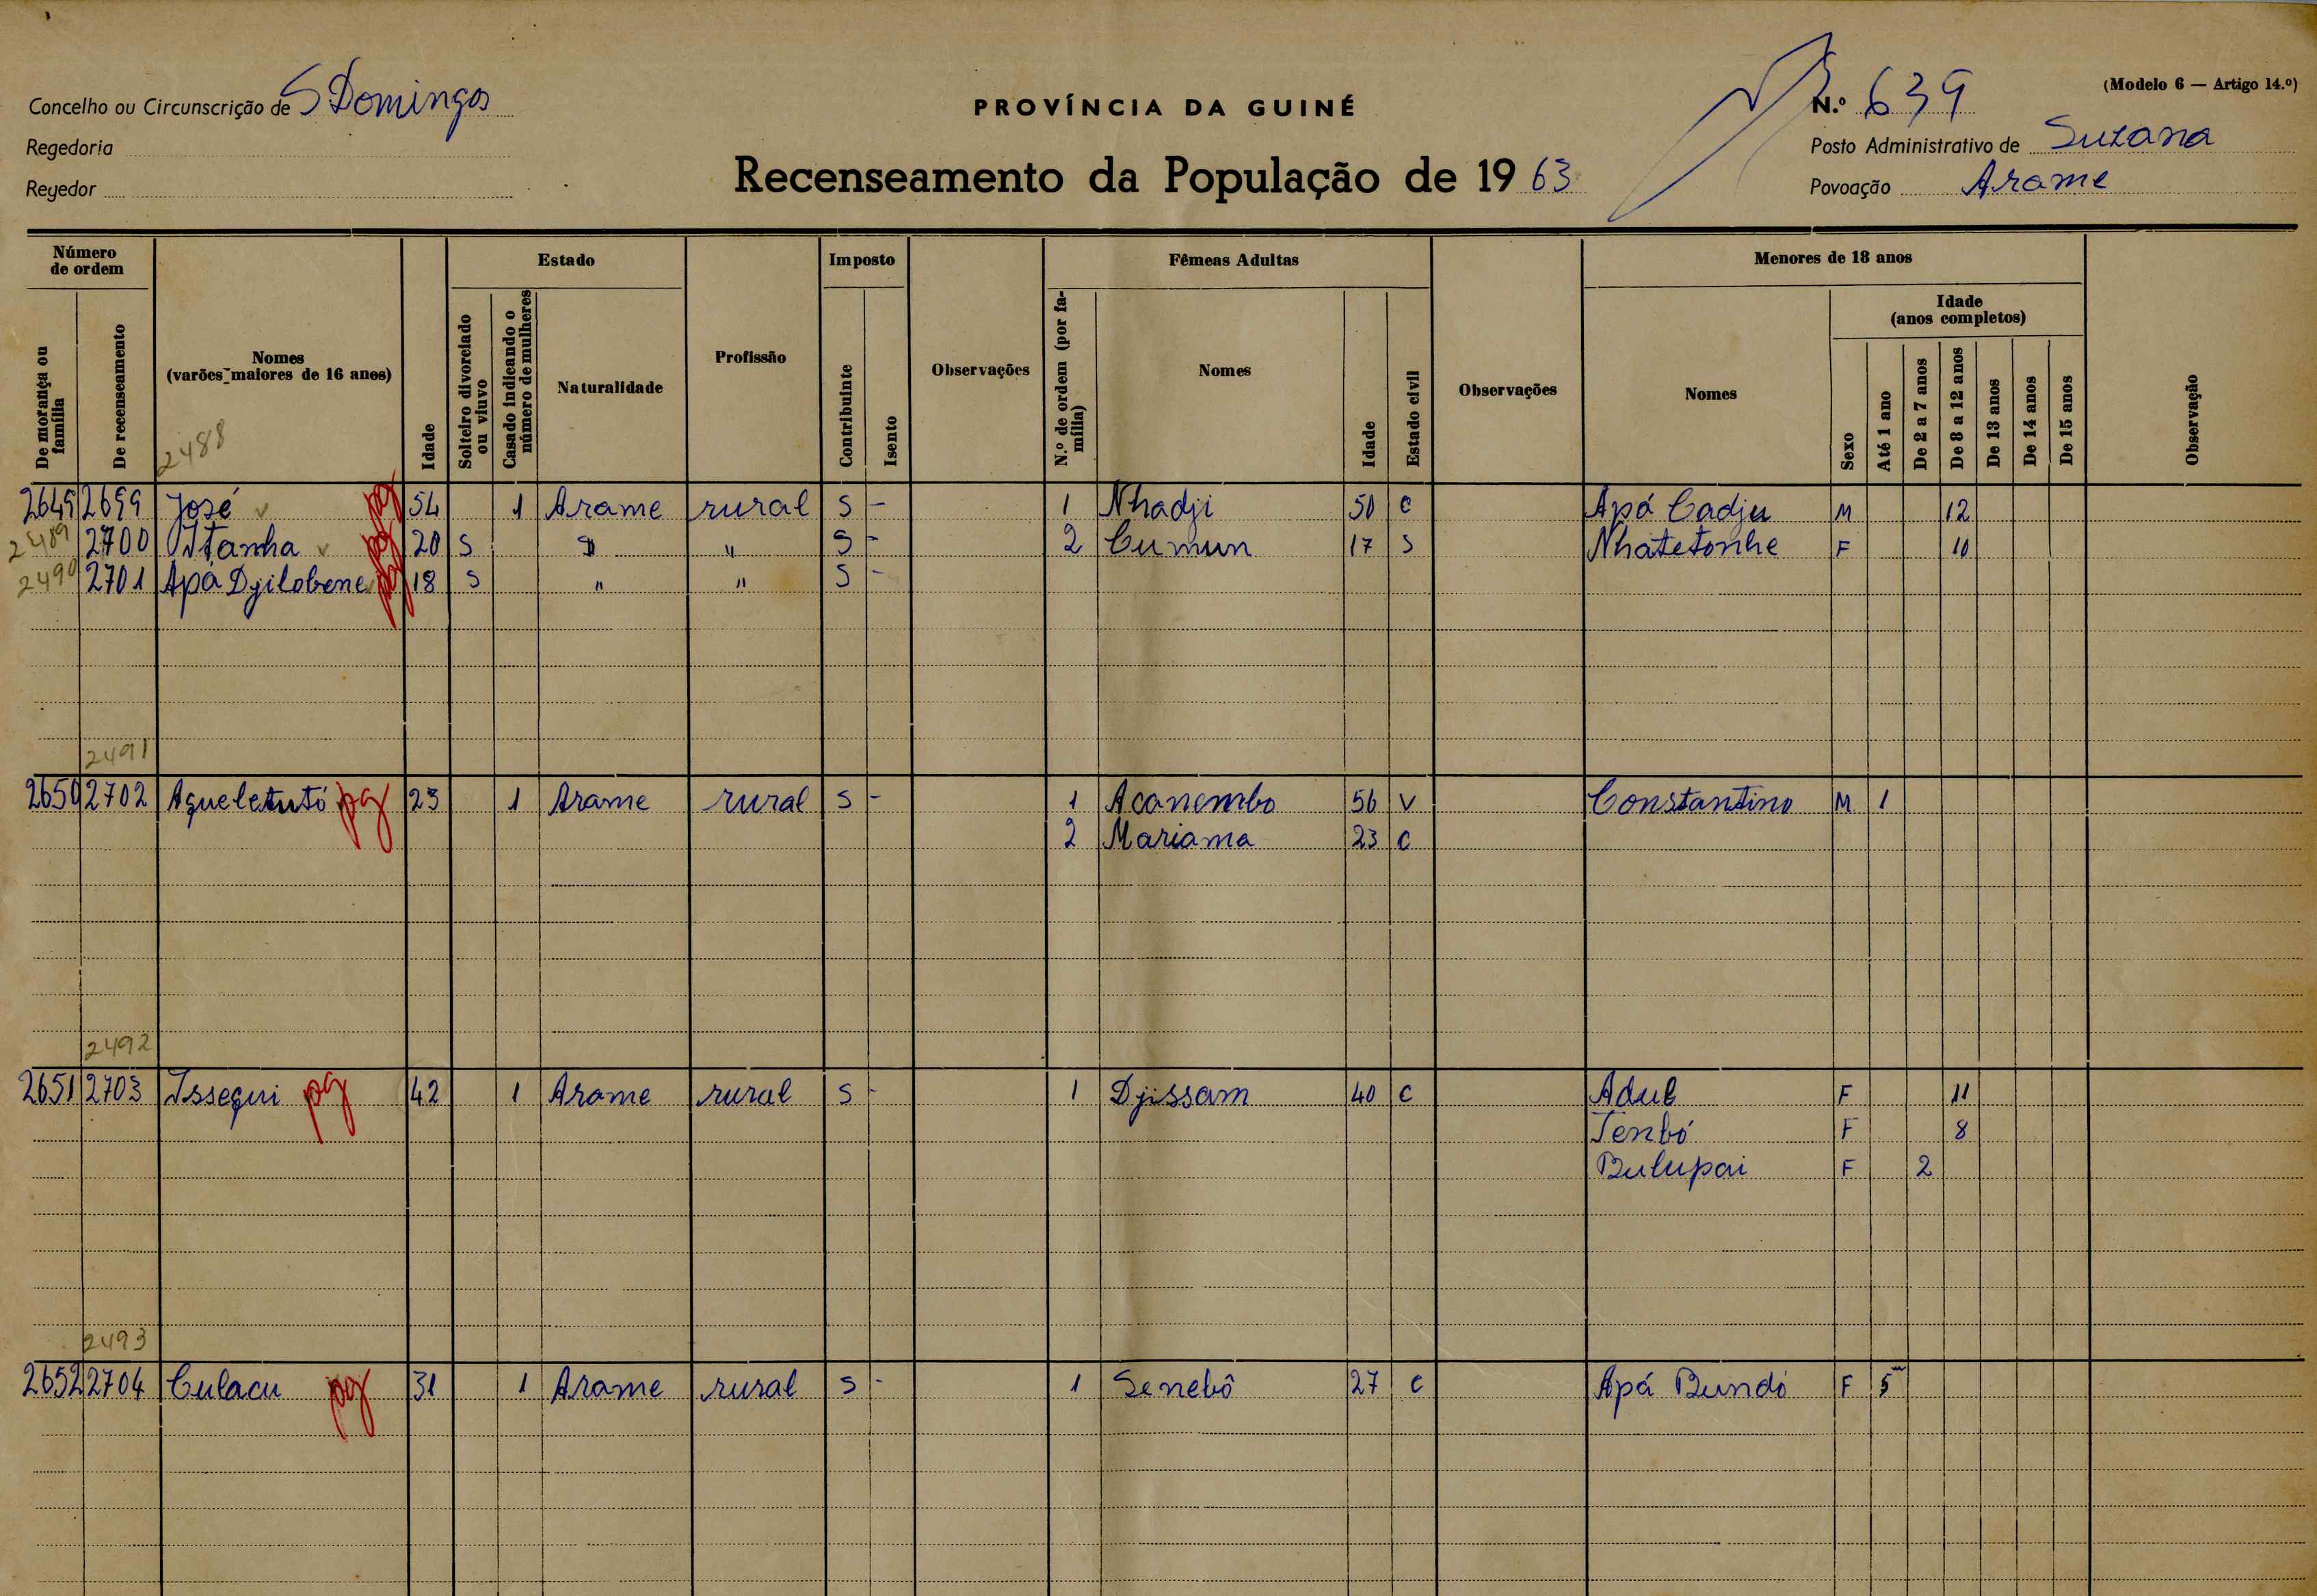 (Modelo 6 — Artigo 14.º)
Concelho ou Circunscrição de S Domingos
PROVÍNCIA DA GUINÉ
N.º 639
Regedoria
Posto Administrativo de Suzana
Regedor
Recenseamento da População de 1963
Povoação Arame
Número de ordem
Estado
Imposto
Fêmeas Adultas
Menores de 18 anos
Idade (anos completos)
De morança ou família
De recenseamento
Nomes (varões maiores de 16 anos)
Idade
Solteiro divorciado ou viuvo
Casado indicando o número de mulheres
Naturalidade
Profissão
Contribuinte
Isento
Observações
N.º de ordem (por família)
Nomes
Idade
Estado civil
Observações
Nomes
Sexo
Até 1 ano
De 2 a 7 anos
De 8 a 12 anos
De 13 anos
De 14 anos
De 15 anos
Observação
2488
2649 2699 José pg 54 1 Arame rural S - 1 Nhadji 50 C Apá Cadju M 12
2489 2700 Itanha pg 20 S " " S - 2 Cumun 17 S Nhatetonhe F 10
2490 2701 Apá Djilobene pg 18 S " " S -
2491
2650 2702 Agueletutó pg 23 1 Arame rural S - 1 Aconembo 56 V Constantino M 1
2 Mariama 23 C
2492
2651 2703 Issequi pg 42 1 Arame rural S - 1 Djissam 40 C Adul F 11
Tenbó F 8
Bulupai F 2
2493
2652 2704 Culacu pg 31 1 Arame rural S - 1 Senebô 27 C Apá Bundó F 5